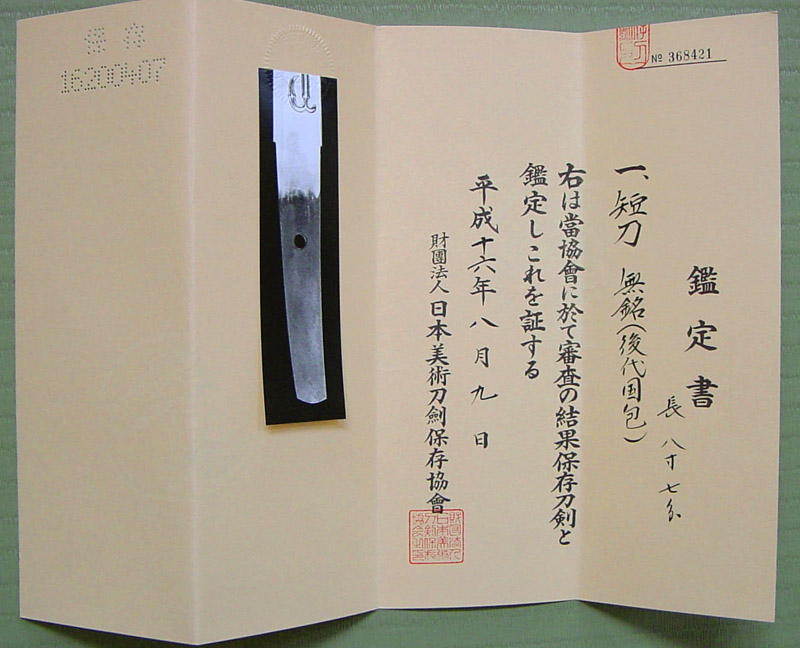 № 368421
鑑定書
長 八寸七分
一、短刀 無銘(後代国包)
右は當協會に於て審査の結果保存刀剣と
鑑定しこれを証する
平成十六年八月九日
財團法人 日本美術刀劍保存協會
16200407